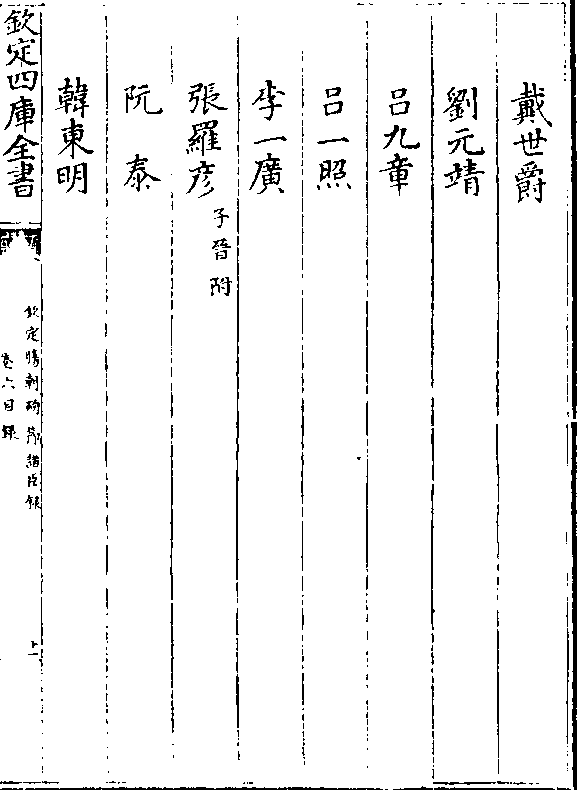 戴世爵
劉元靖
呂九章
呂一照
李一廣
張羅彦子晉附
阮泰
韓東明
欽定四庫全書
欽定勝朝殉節諸臣錄
卷六目錄
十一